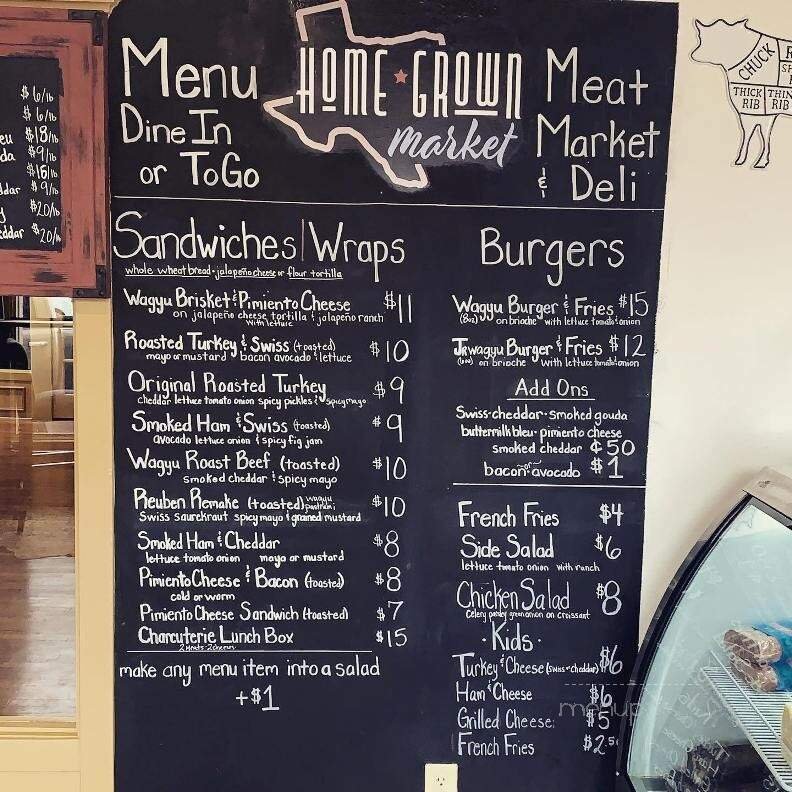 $6/lb
$6/lb
eu $18/lb
da $9/lb
$16/lb
ddar $9/lb
y $20/lb
eddar $20/lb
Menu
Dine In
or ToGo
HOME GROWN
market
Meat
Market
& Deli
CHUCK
THICK RIB
THIN RIB
Sandwiches | Wraps
whole wheat bread - jalapeño cheese or flour tortilla
Wagyu Brisket & Pimiento Cheese $11
on jalapeño cheese tortilla & jalapeño ranch
with lettuce
Roasted Turkey & Swiss (toasted) $10
mayo or mustard bacon avocado & lettuce
Original Roasted Turkey $9
cheddar lettuce tomato onion spicy pickles & spicy mayo
Smoked Ham & Swiss (toasted) $9
avocado lettuce onion & spicy fig jam
Wagyu Roast Beef (toasted) $10
smoked cheddar & spicy mayo
Reuben Remake (toasted) wagyu pastrami $10
Swiss saurekraut spicy mayo & grained mustard
Smoked Ham & Cheddar $8
lettuce tomato onion mayo or mustard
Pimiento Cheese & Bacon (toasted) $8
cold or worm
Pimiento Cheese Sandwich (toasted) $7
Charcuterie Lunch Box $15
2 Meats - 2 Cheeses
make any menu item into a salad
+$1
Burgers
Wagyu Burger & Fries $15
(8oz) on brioche with lettuce tomato & onion
Jr wagyu Burger & Fries $12
on brioche with lettuce tomato & onion
Add Ons
Swiss - cheddar - smoked gouda
buttermilk bleu - pimiento cheese
smoked cheddar ¢50
bacon or avocado $1
French Fries $4
Side Salad $6
lettuce tomato onion with ranch
Chicken Salad $8
Celery parsley green onion on croissant
· Kids ·
Turkey & Cheese (swiss or cheddar) $6
Ham & Cheese $6
Grilled Cheese: $5
French Fries $2.50